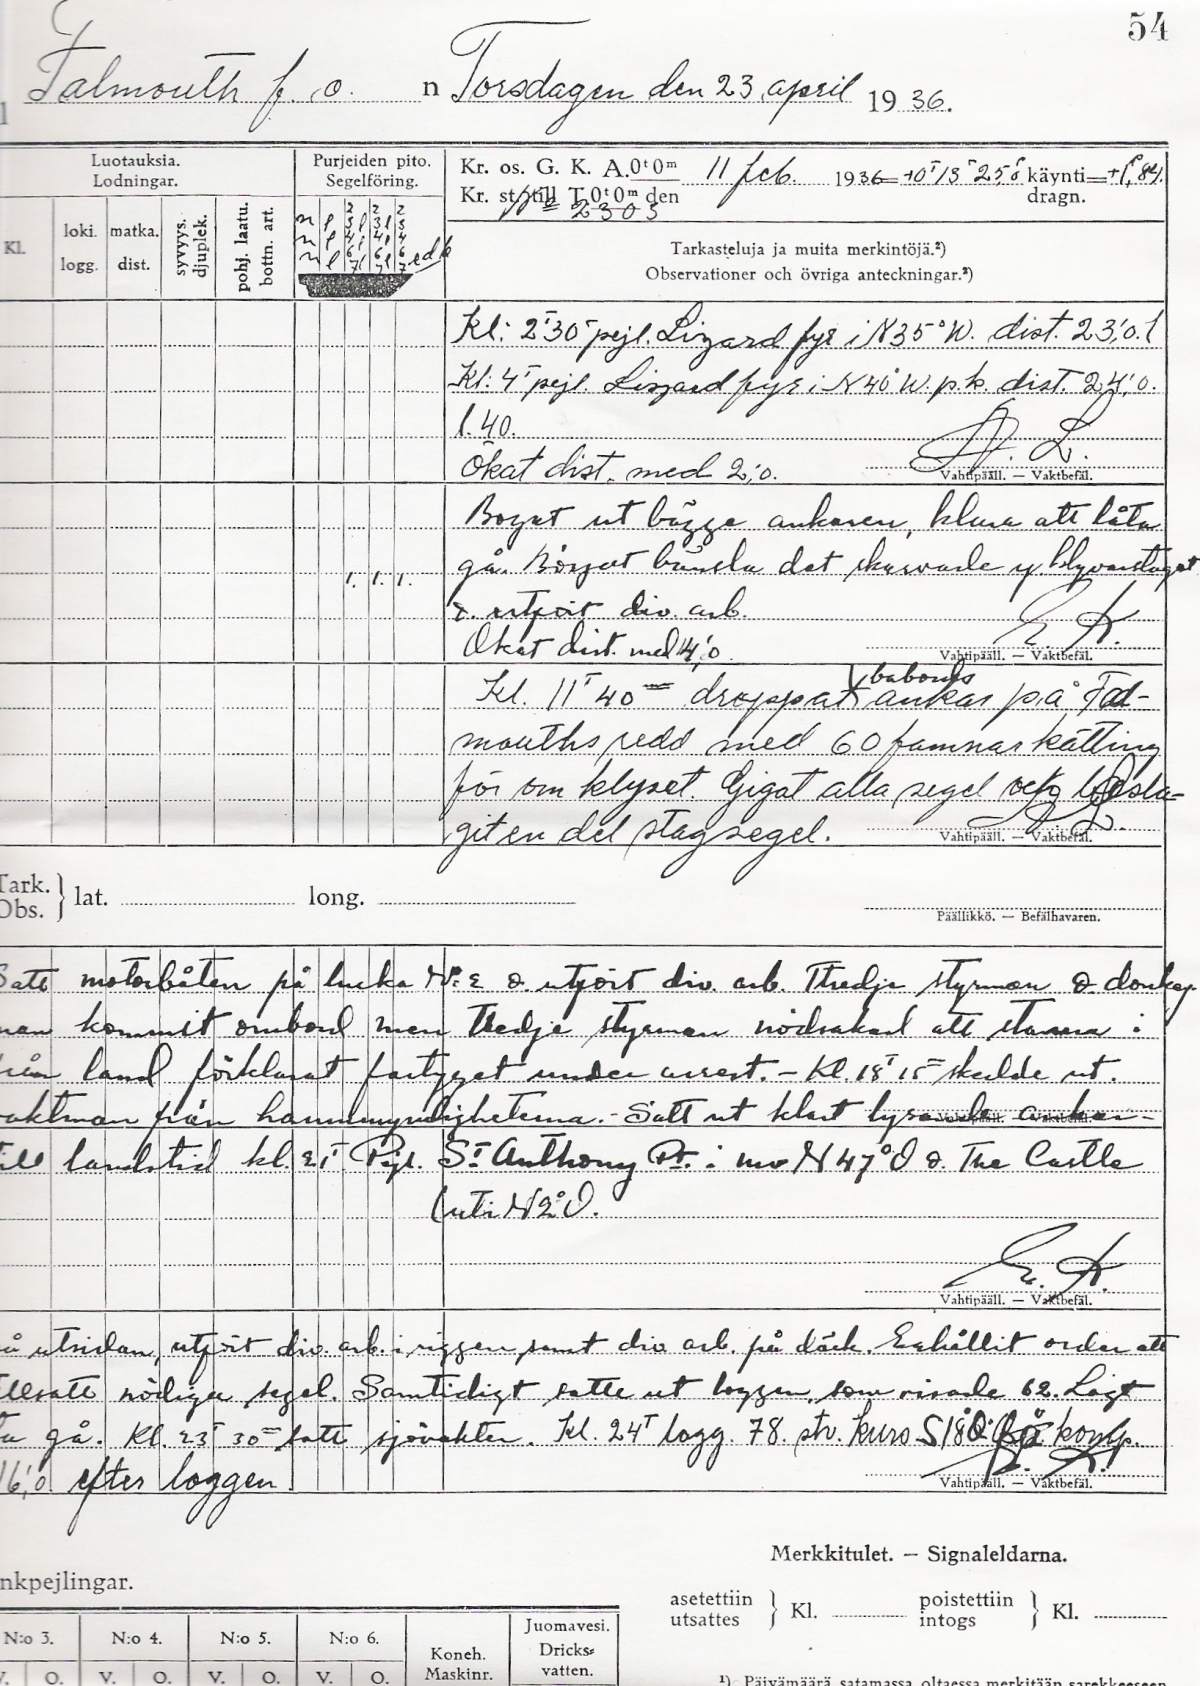 54
Falmouth f. o. n Torsdagen den 23 april 1936.
Luotauksia.
Lodningar.
Purjeiden pito.
Segelföring.
Kr. os. G. K. A. 0ᵗ0ᵐ 11 feb. 1936 = +0ᵗ13 käynti =+1,84.
Kr. st. till T. 0ᵗ0ᵐ den dragn.
2305
Kl.
loki.
logg.
matka.
dist.
syvyys.
djuplek.
pohj. laatu.
bottn. art.
Tarkasteluja ja muita merkintöjä.²)
Observationer och övriga anteckningar.²)
Kl: 2ᵀ30 pejl. Lizard fyr i N35°W. dist. 23,0. l
Kl: 4ᵀ pejl. Lizzard fyr i N40°W. p.k. dist. 24,0.
l.40.
Ökat dist. med 2,0.
Vahtipääll. — Vaktbefäl.
Bogat ut bägge ankaren, klara att låta
gå. det skavade klyvarstaget
o. utfört div. arb.
Ökat dist. med 14,0
E. K.
Vahtipääll. — Vaktbefäl.
1. 1. 1.
babords
Kl. 11ᵀ40 droppat ankar på Fal-
mouths redd med 60 famnar kätting
för om klyset. Gigat alla segel och besla-
git en del stagsegel.
Vahtipääll. — Vaktbefäl.
Tark.
Obs. } lat. long.
Päällikkö. — Befälhavaren.
Satt motorbåten på lucka N:ᵒ 2 o. utfört div. arb. Tredje styrman o. donkey-
man kommit ombord men tredje styrman nödsakad att stanna i
från land förklarat fartyget under arrest. — Kl. 18ᵀ15 skedde ut.
vaktman från hamnmyndigheterna. - Satt ut klart lysande ankar-
till landstid kl. 21ᵀ Pejl. Sᵗ Anthony Pt. i mv N47°O o. The Castle
(uti N2°O.
E. K.
Vahtipääll. — Vaktbefäl.
på utsidan, utfört div. arb. i riggen samt div. arb. på däck. Erhållit order att
tillsatt nödiga segel. Samtidigt satte ut loggen som visade 62. Lagt
gå. Kl. 23ᵀ30 satt sjövakten. Kl. 24ᵀ logg. 78. stv. kurs S18°O komp.
16,0 efter loggen
Vahtipääll. — Vaktbefäl.
Merkkitulet. — Signaleldarna.
nkpejlingar.
asetettiin
utsattes } Kl.
poistettiin
intogs } Kl.
N:o 3. N:o 4. N:o 5. N:o 6.
V. O. V. O. V. O. V. O.
Koneh.
Maskinr.
Juomavesi.
Dricks-
vatten.
¹) Päivämäärä satamassa oltaessa merkitään sarekkeeseen